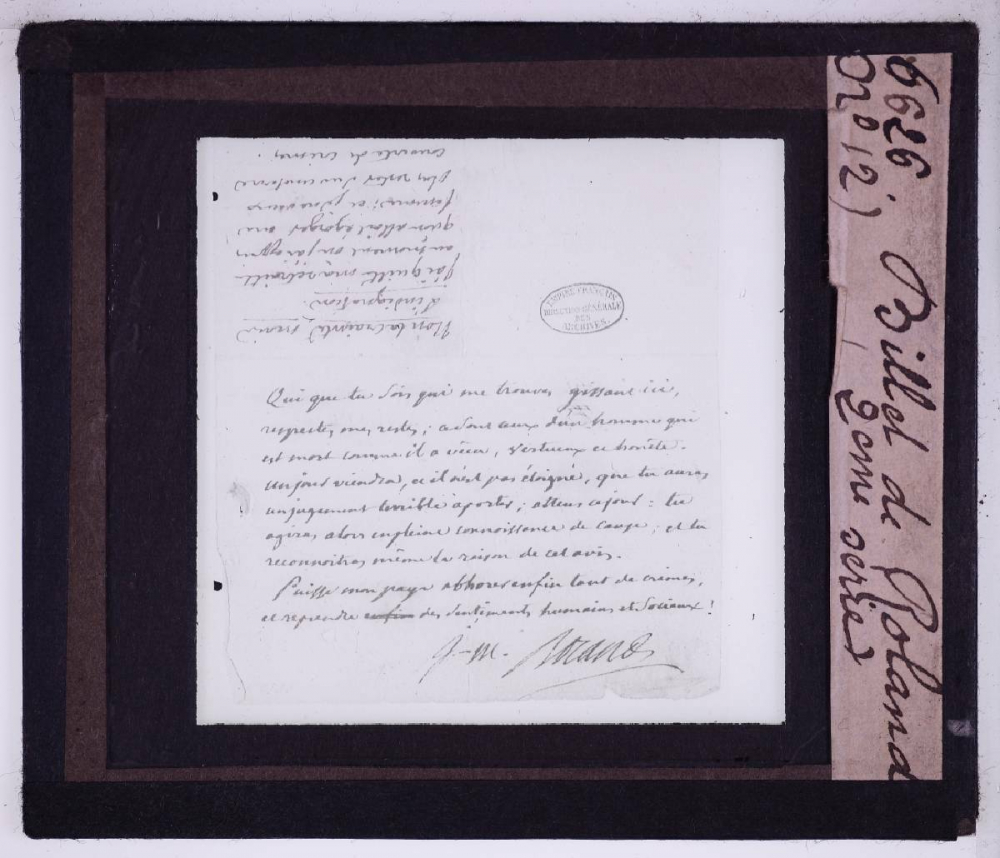 Non la crainte, mais
l'indignation.
J'ai quitté ma retraite
au moment où j'ai appris
qu'on alloit égorger ma
femme; et je ne veux
plus rester sur une terre
couverte de crimes.
EMPIRE FRANÇAIS
DIRECTION GÉNÉRALE
DES
ARCHIVES
Qui que tu sois qui me trouves gissant ici,
respectes mes restes; ce sont ceux d'un homme qui
est mort comme il a vécu, vertueux et honête.
un jour viendra, et il n'est pas éloigné, que tu auras
un jugement terrible à porter; attens ce jour: tu
agiras alors en pleine connoissance de cause; et tu
reconnoitras même la raison de cet avis.
Puisse mon pays abhorer enfin tant de crimes,
et reprendre enfin des sentiments humains et sociaux!
J-M. Roland
6626. Billet de Roland
(N° 12) 2eme serie